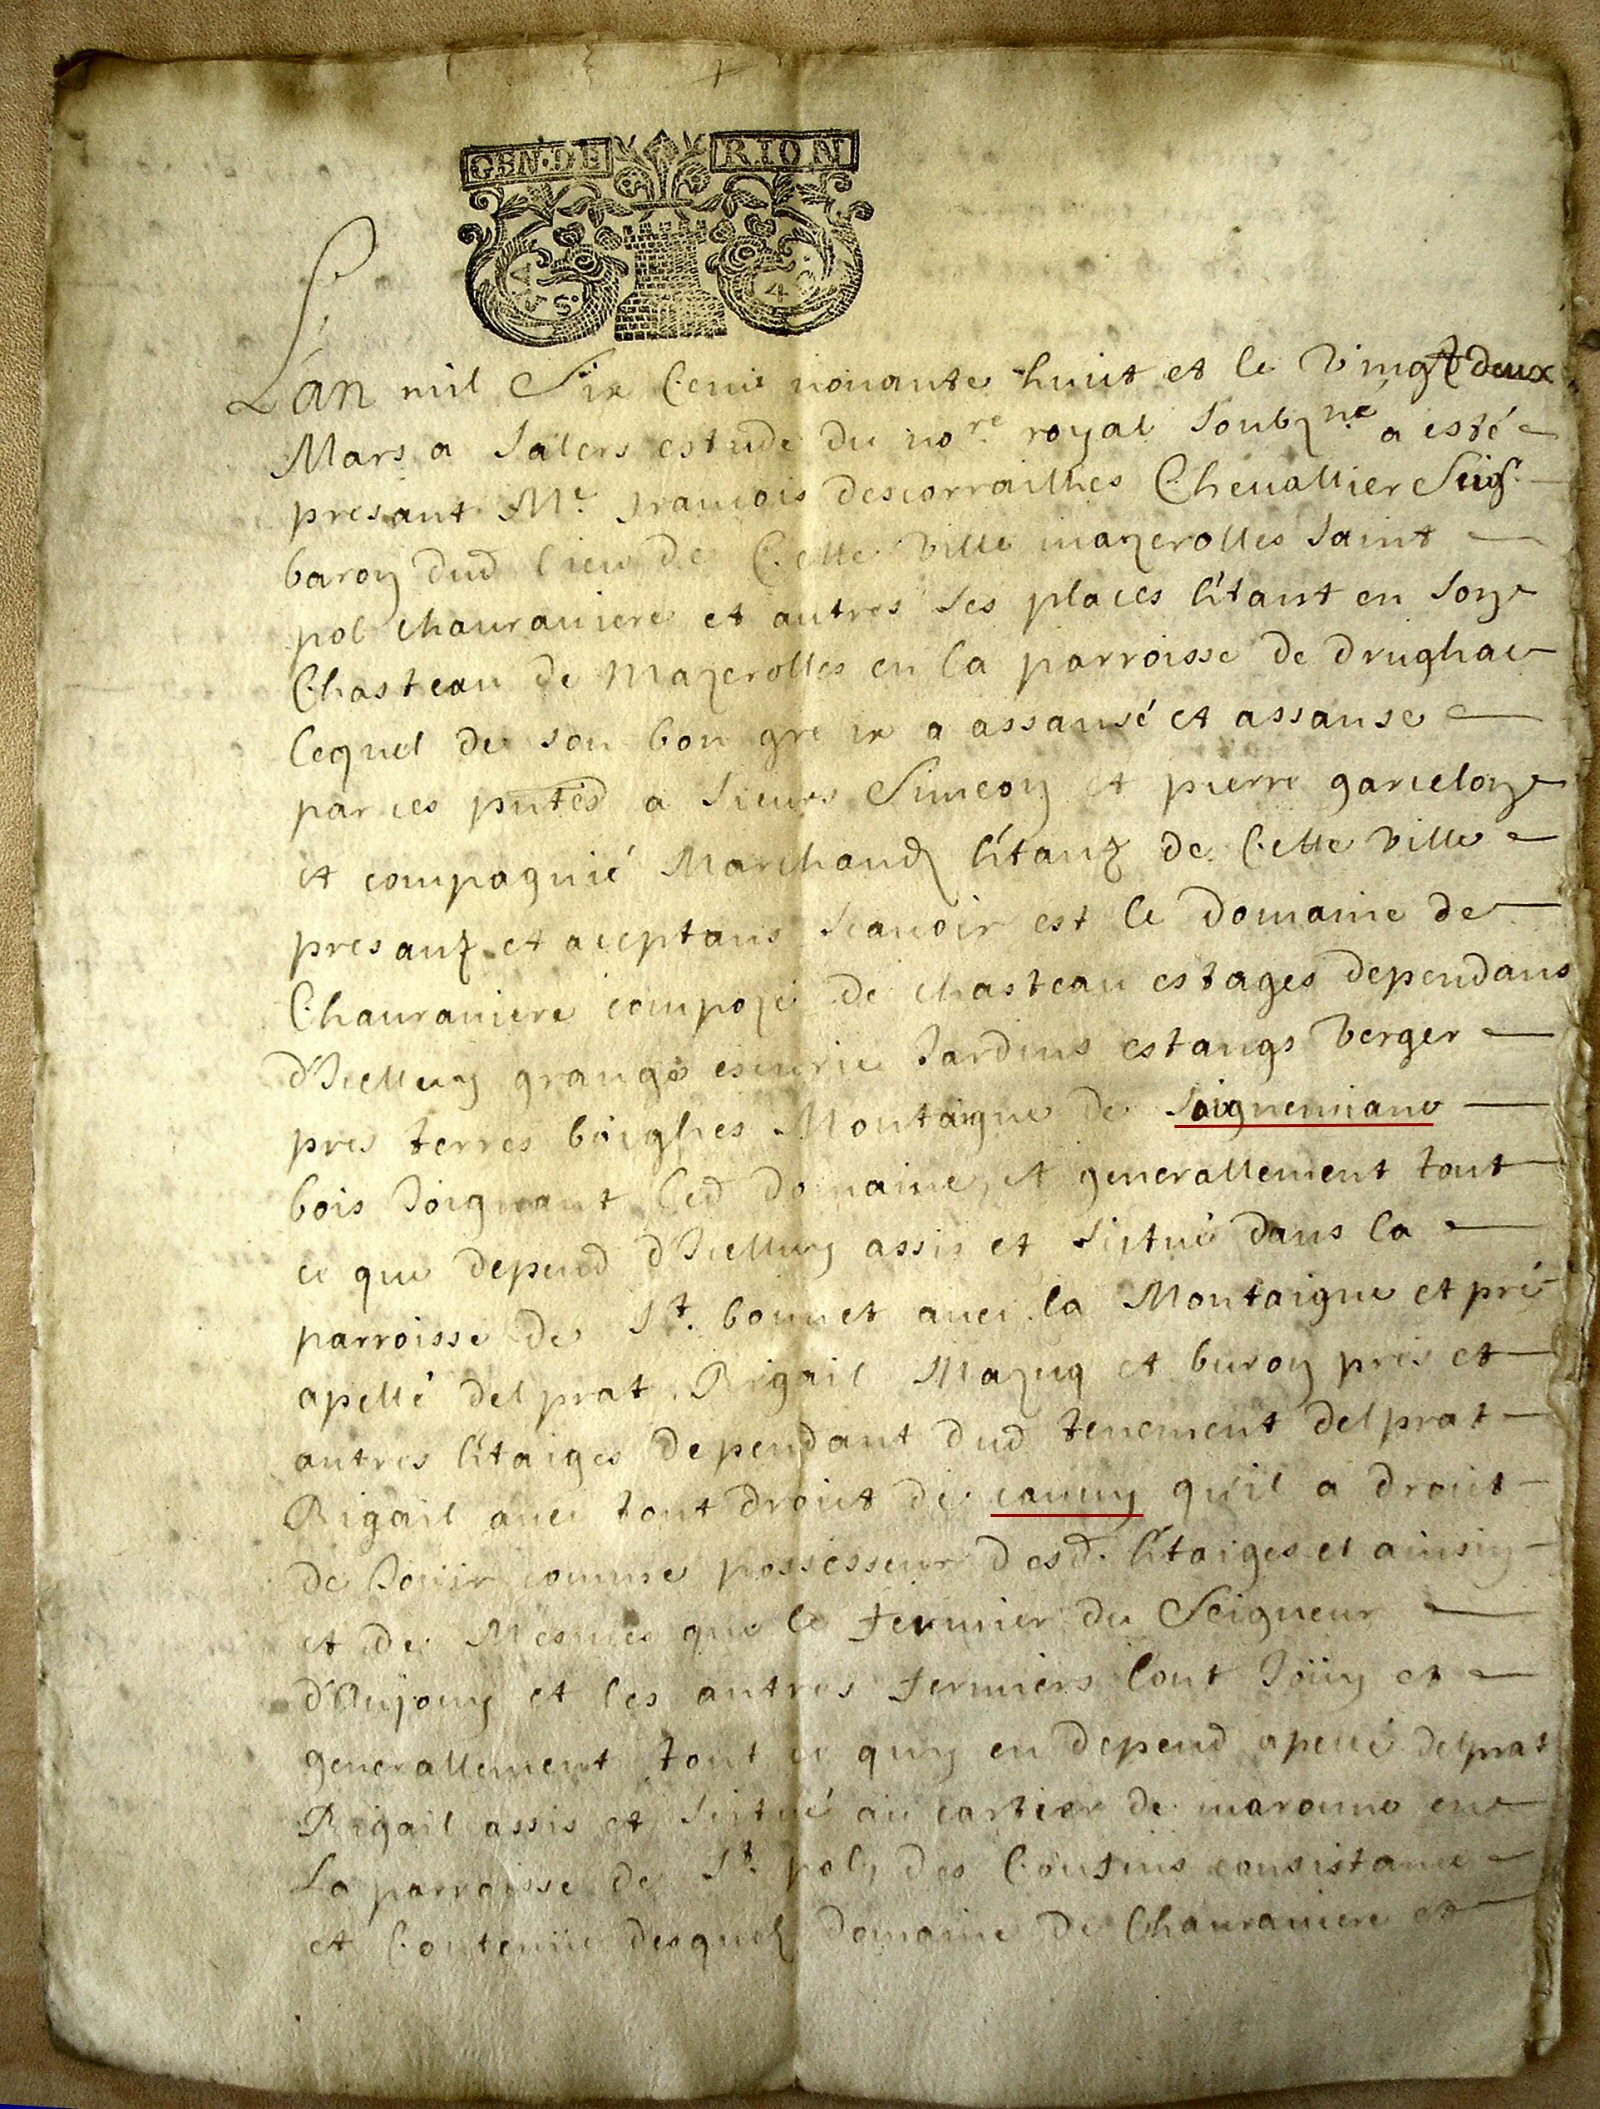 GEN·DE RION
4 S·
4
L'an mil Six Cens nonante huict et le vingt deux
Mars a Salers estude du no.re royal soubz.né a esté
presant M.e francois descorrailhes Chevallier Seig.r
baron dud lieu de Cette ville mazerolles saint
pol chauraniere et autres ses places h'itant en son
Chasteau de Mazerolles en la parroisse de drughac
lequel de son bon gre a assansé et assanse
par ces pntes a sieurs Simeon et pierre garcelon
et compagnié Marchandz h'itantz de Cette ville
presantz et aceptans scavoir est le domaine de
Chauraniere compozé de chasteau estages dependans
d'Icelluy grange escurie Jardins estangs verger
pres terres boighes Montaigne de
bois Joignant led domaine, et generallement tout
ce que depend d'Icelluy assis et situé dans la
parroisse de S.t bonnet avec la Montaigne et pré
apellé delprat Rigail Mazuq et buron pres et
autres h'itaiges dependant dud tenement delprat
Rigail avec tout droict de qu'il a droict
de Jouir comme possesseur desd. h'itaiges et ainsin
et de Mesmes que le fermier du Seigneur
d'Anjouy et les autres fermiers l'ont Joüy et
generallement tout ce quy en depend apellé delprat
Rigail assis et situé au cartier de en
La parroisse de S.t pol des consistance
et Contenüe desquelz domaine de Chauraniere et